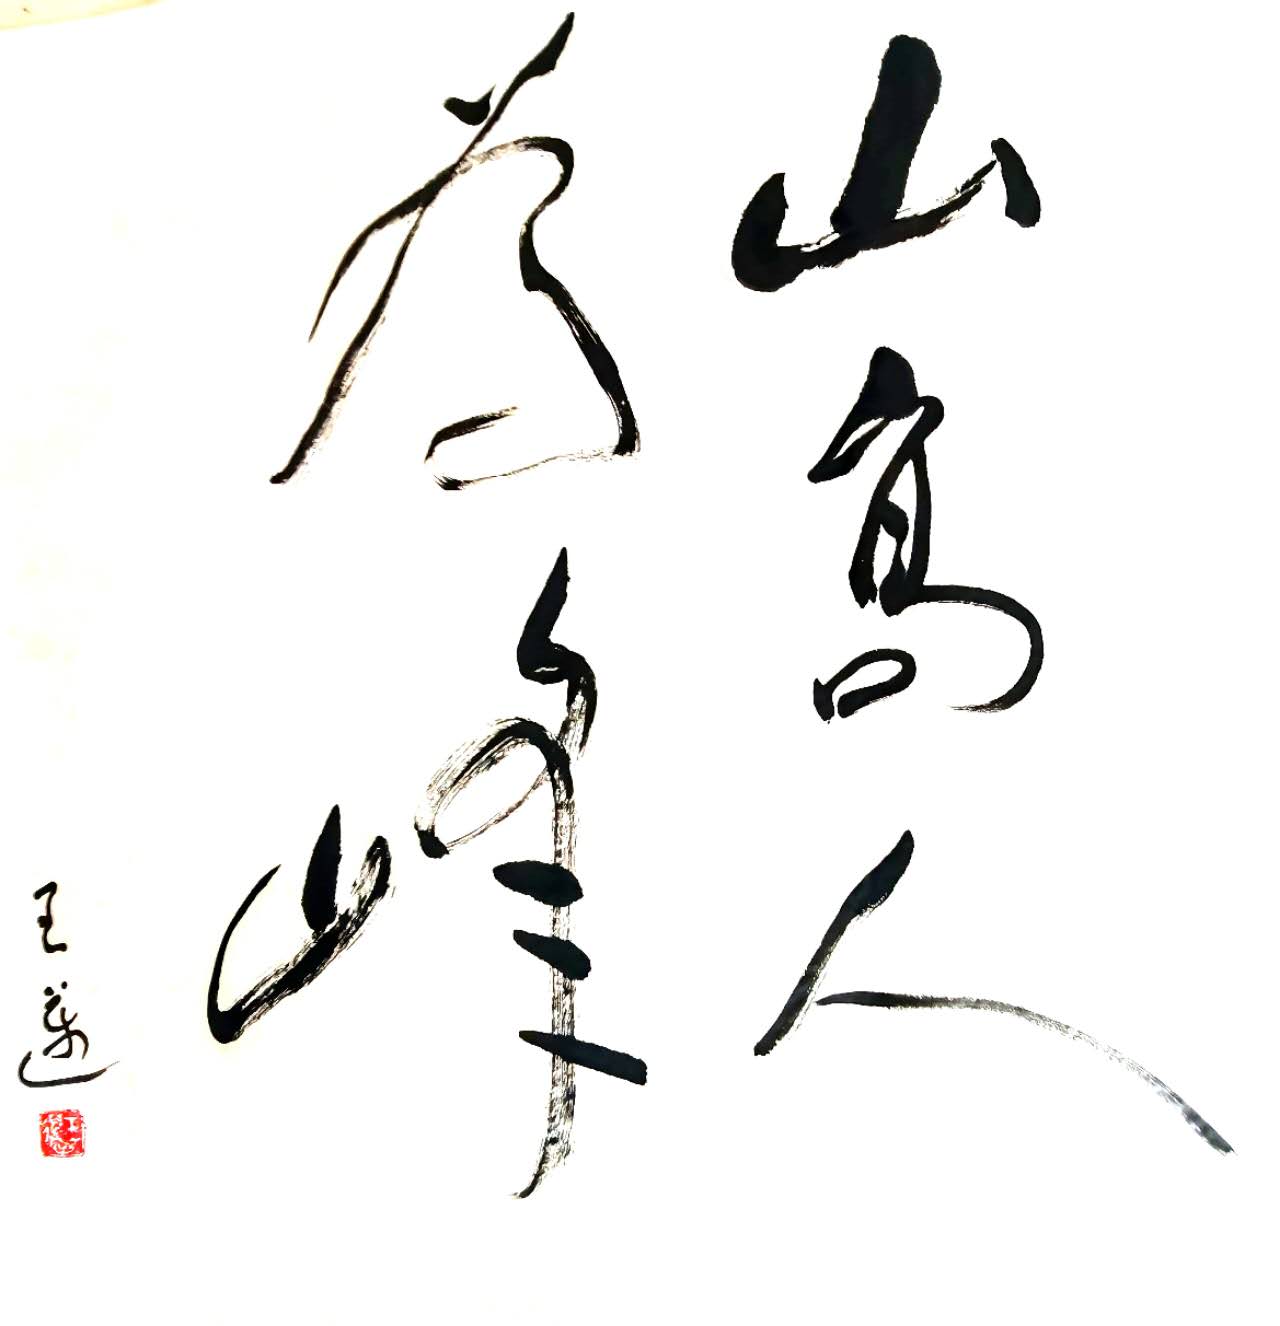 山高人
为峰
王莲